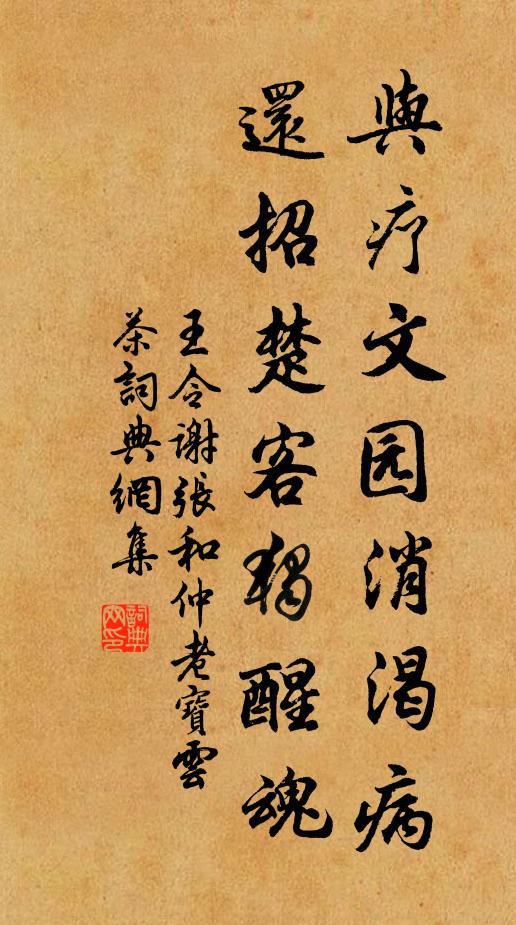 與疗文园消渴病
還招楚客獨醒魂
王令謝張和仲惠寶雲
茶詞典網集
詞典网印